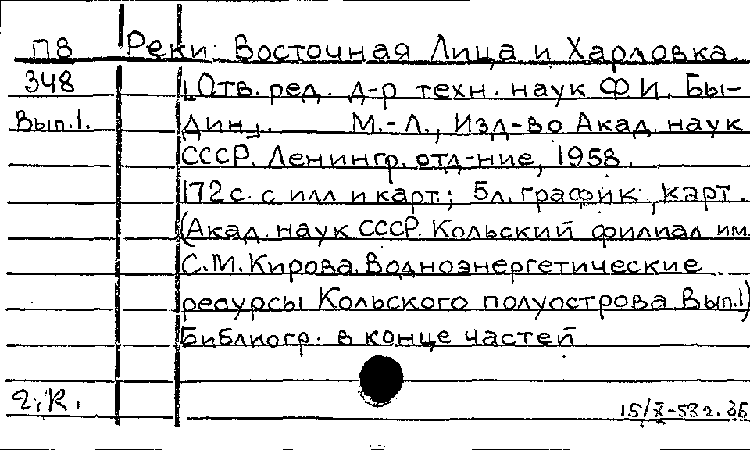 П8 Реки: Восточная Лица и Харловка
348 [Отв. ред. д-р техн. наук Ф И. Бы-
Вып.1. дин]. М.-Л., Изд-во Акад. наук
СССР. Ленингр. отд-ние, 1958.
172 с. с илл и карт.; 5 л. график, карт.
(Акад. наук СССР. Кольский филиал им.
С.М. Кирова. Водноэнергетические
ресурсы Кольского полуострова Вып.1)
Библиогр. в конце частей
2.К.